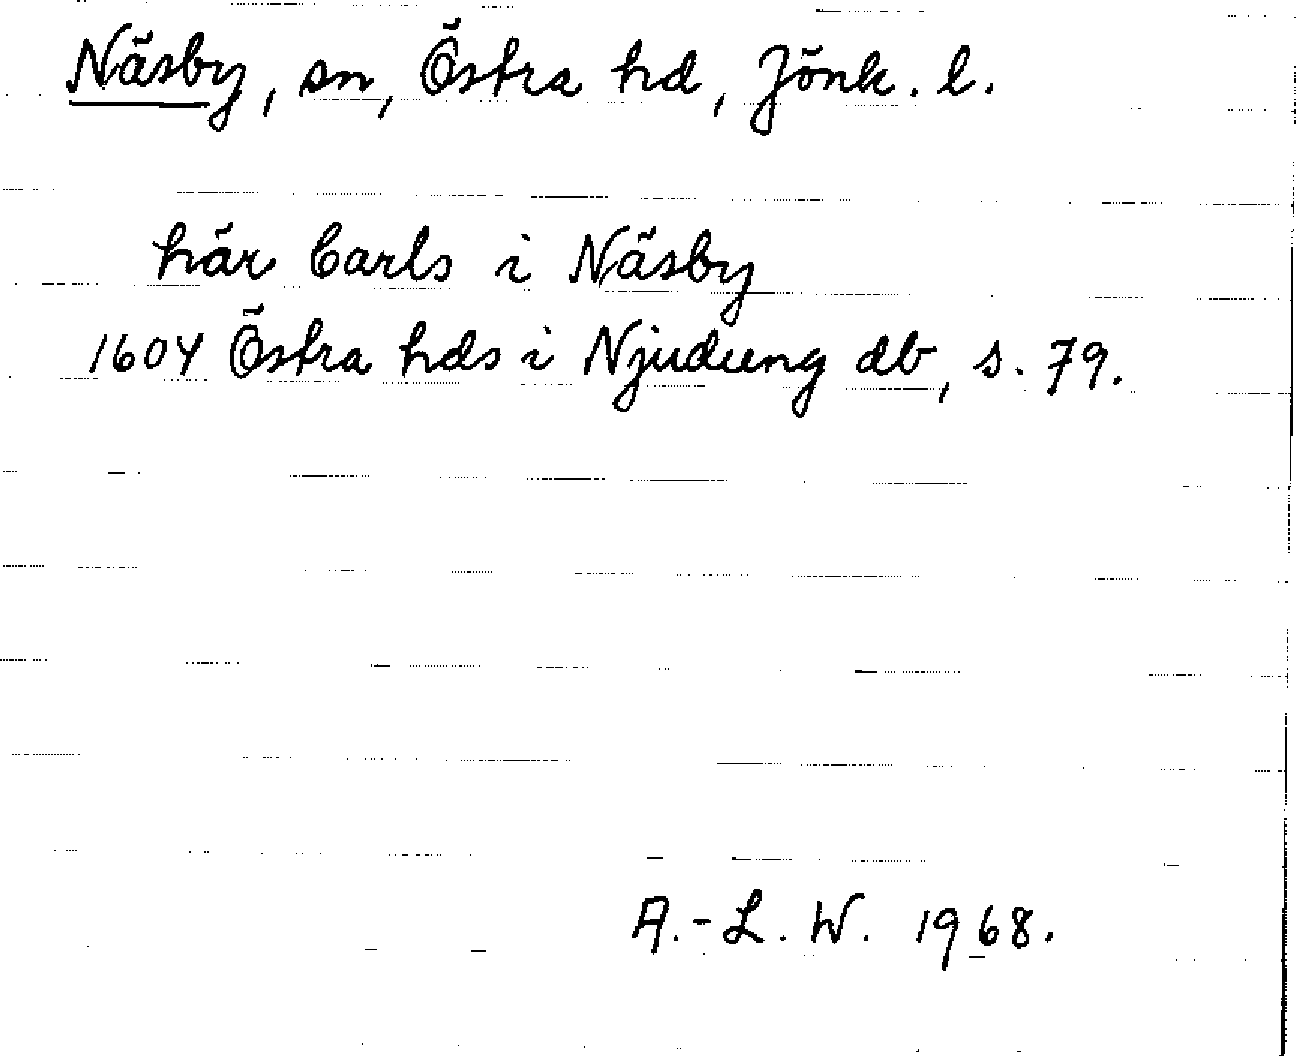 Näsby, sn, Östra hd, Jönk. l.
här Carls i Näsby
1604 Östra hds i Njudung db, s. 79.
A.-L. W. 1968.